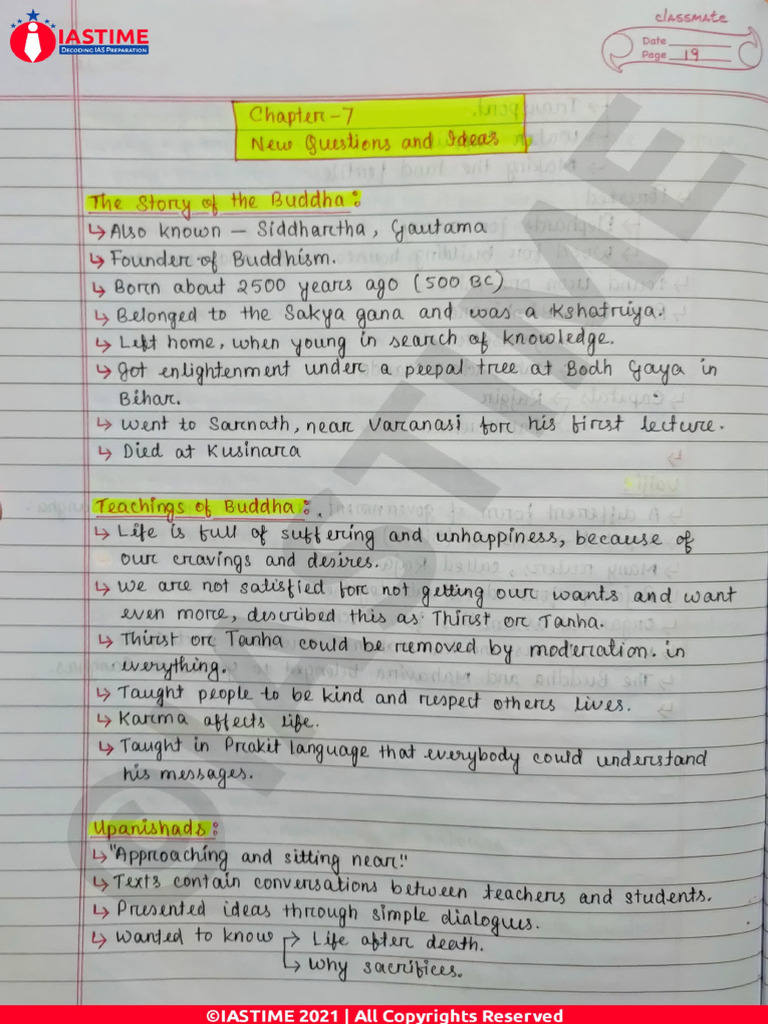 IASTIME
DECODING IAS PREPARATION
classmate
Date
Page 19
Chapter-7
New Questions and Ideas
The Story of the Buddha:
↳ Also known — Siddhartha, Gautama
↳ Founder of Buddhism.
↳ Born about 2500 years ago (500 BC)
↳ Belonged to the Sakya gana and was a Kshatriya.
↳ Left home, when young in search of knowledge.
↳ Got enlightenment under a peepal tree at Bodh Gaya in
Bihar.
↳ Went to Sarnath, near Varanasi for his first lecture.
↳ Died at Kusinara
Teachings of Buddha:
↳ Life is full of suffering and unhappiness, because of
our cravings and desires.
↳ We are not satisfied for not getting our wants and want
even more, described this as Thirst or Tanha.
↳ Thirst or Tanha could be removed by moderation. in
everything.
↳ Taught people to be kind and respect others lives.
↳ Karma affects life.
↳ Taught in Prakit language that everybody could understand
his messages.
Upanishads:
↳ "Approaching and sitting near."
↳ Texts contain conversations between teachers and students.
↳ Presented ideas through simple dialogues.
↳ Wanted to know → Life after death.
↳ Why sacrifices.
©IASTIME
©IASTIME 2021 | All Copyrights Reserved